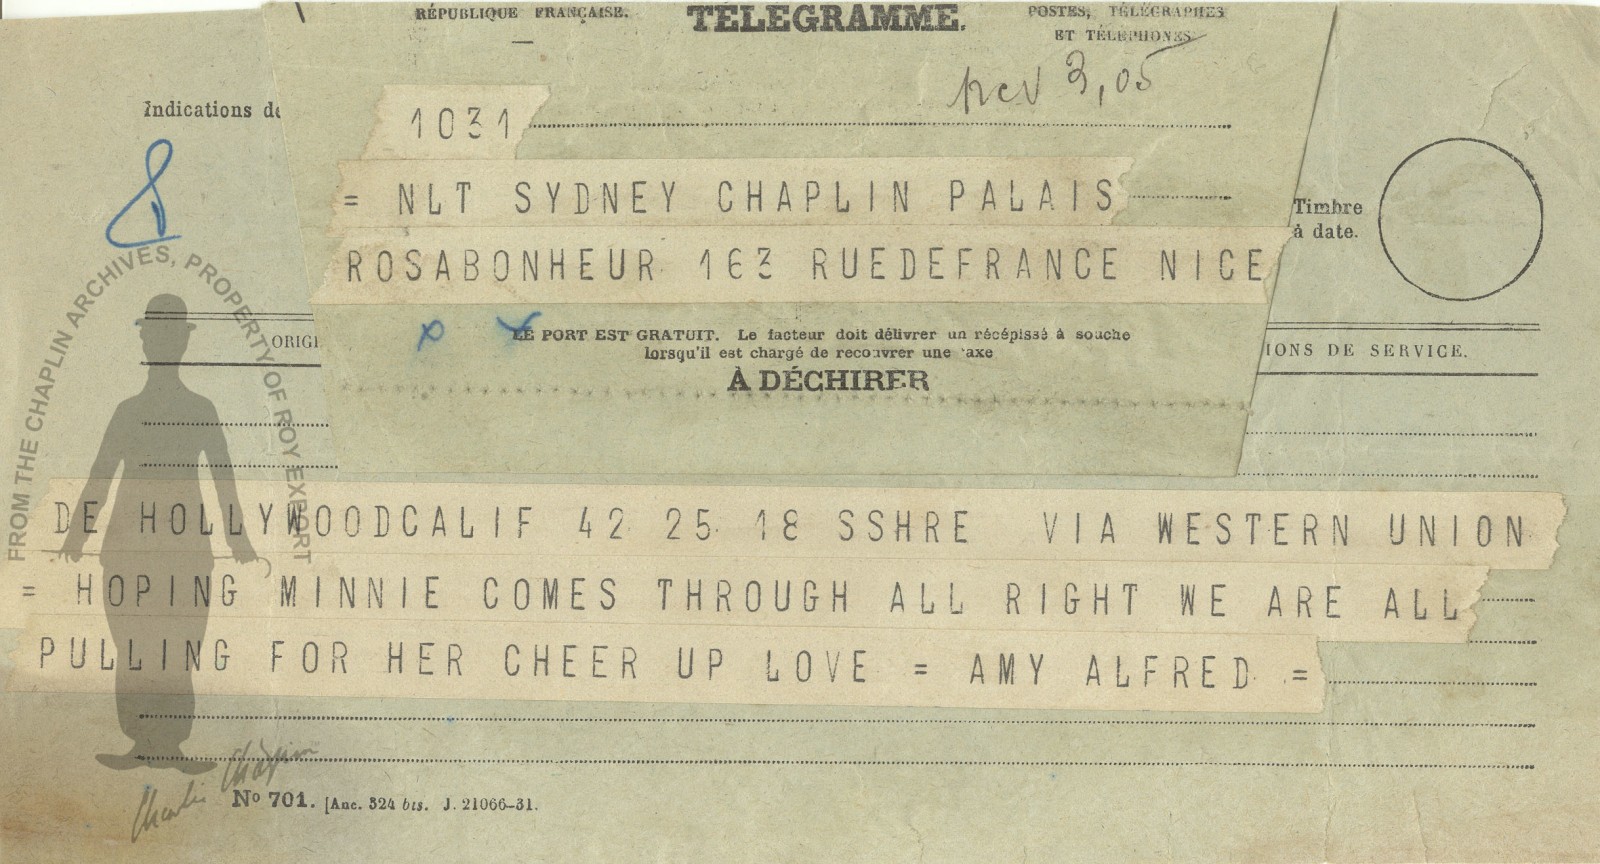 RÉPUBLIQUE FRANÇAISE.
TÉLÉGRAMME.
POSTES, TÉLÉGRAPHES
ET TÉLÉPHONES
3,05
Indications de
1031
= NLT SYDNEY CHAPLIN PALAIS
ROSABONHEUR 163 RUEDEFRANCE NICE
Timbre
à date.
LE PORT EST GRATUIT. Le facteur doit délivrer un récépissé à souche
lorsqu'il est chargé de recouvrer une taxe
À DÉCHIRER
ORIGI
IONS DE SERVICE.
DE HOLLYWOODCALIF 42 25 18 SSHRE VIA WESTERN UNION
= HOPING MINNIE COMES THROUGH ALL RIGHT WE ARE ALL
PULLING FOR HER CHEER UP LOVE = AMY ALFRED =
No 701. [Anc. 324 bis. J. 21066-31.
FROM THE CHAPLIN ARCHIVES, PROPERTY OF ROY EXPORT
Charlie Chaplin